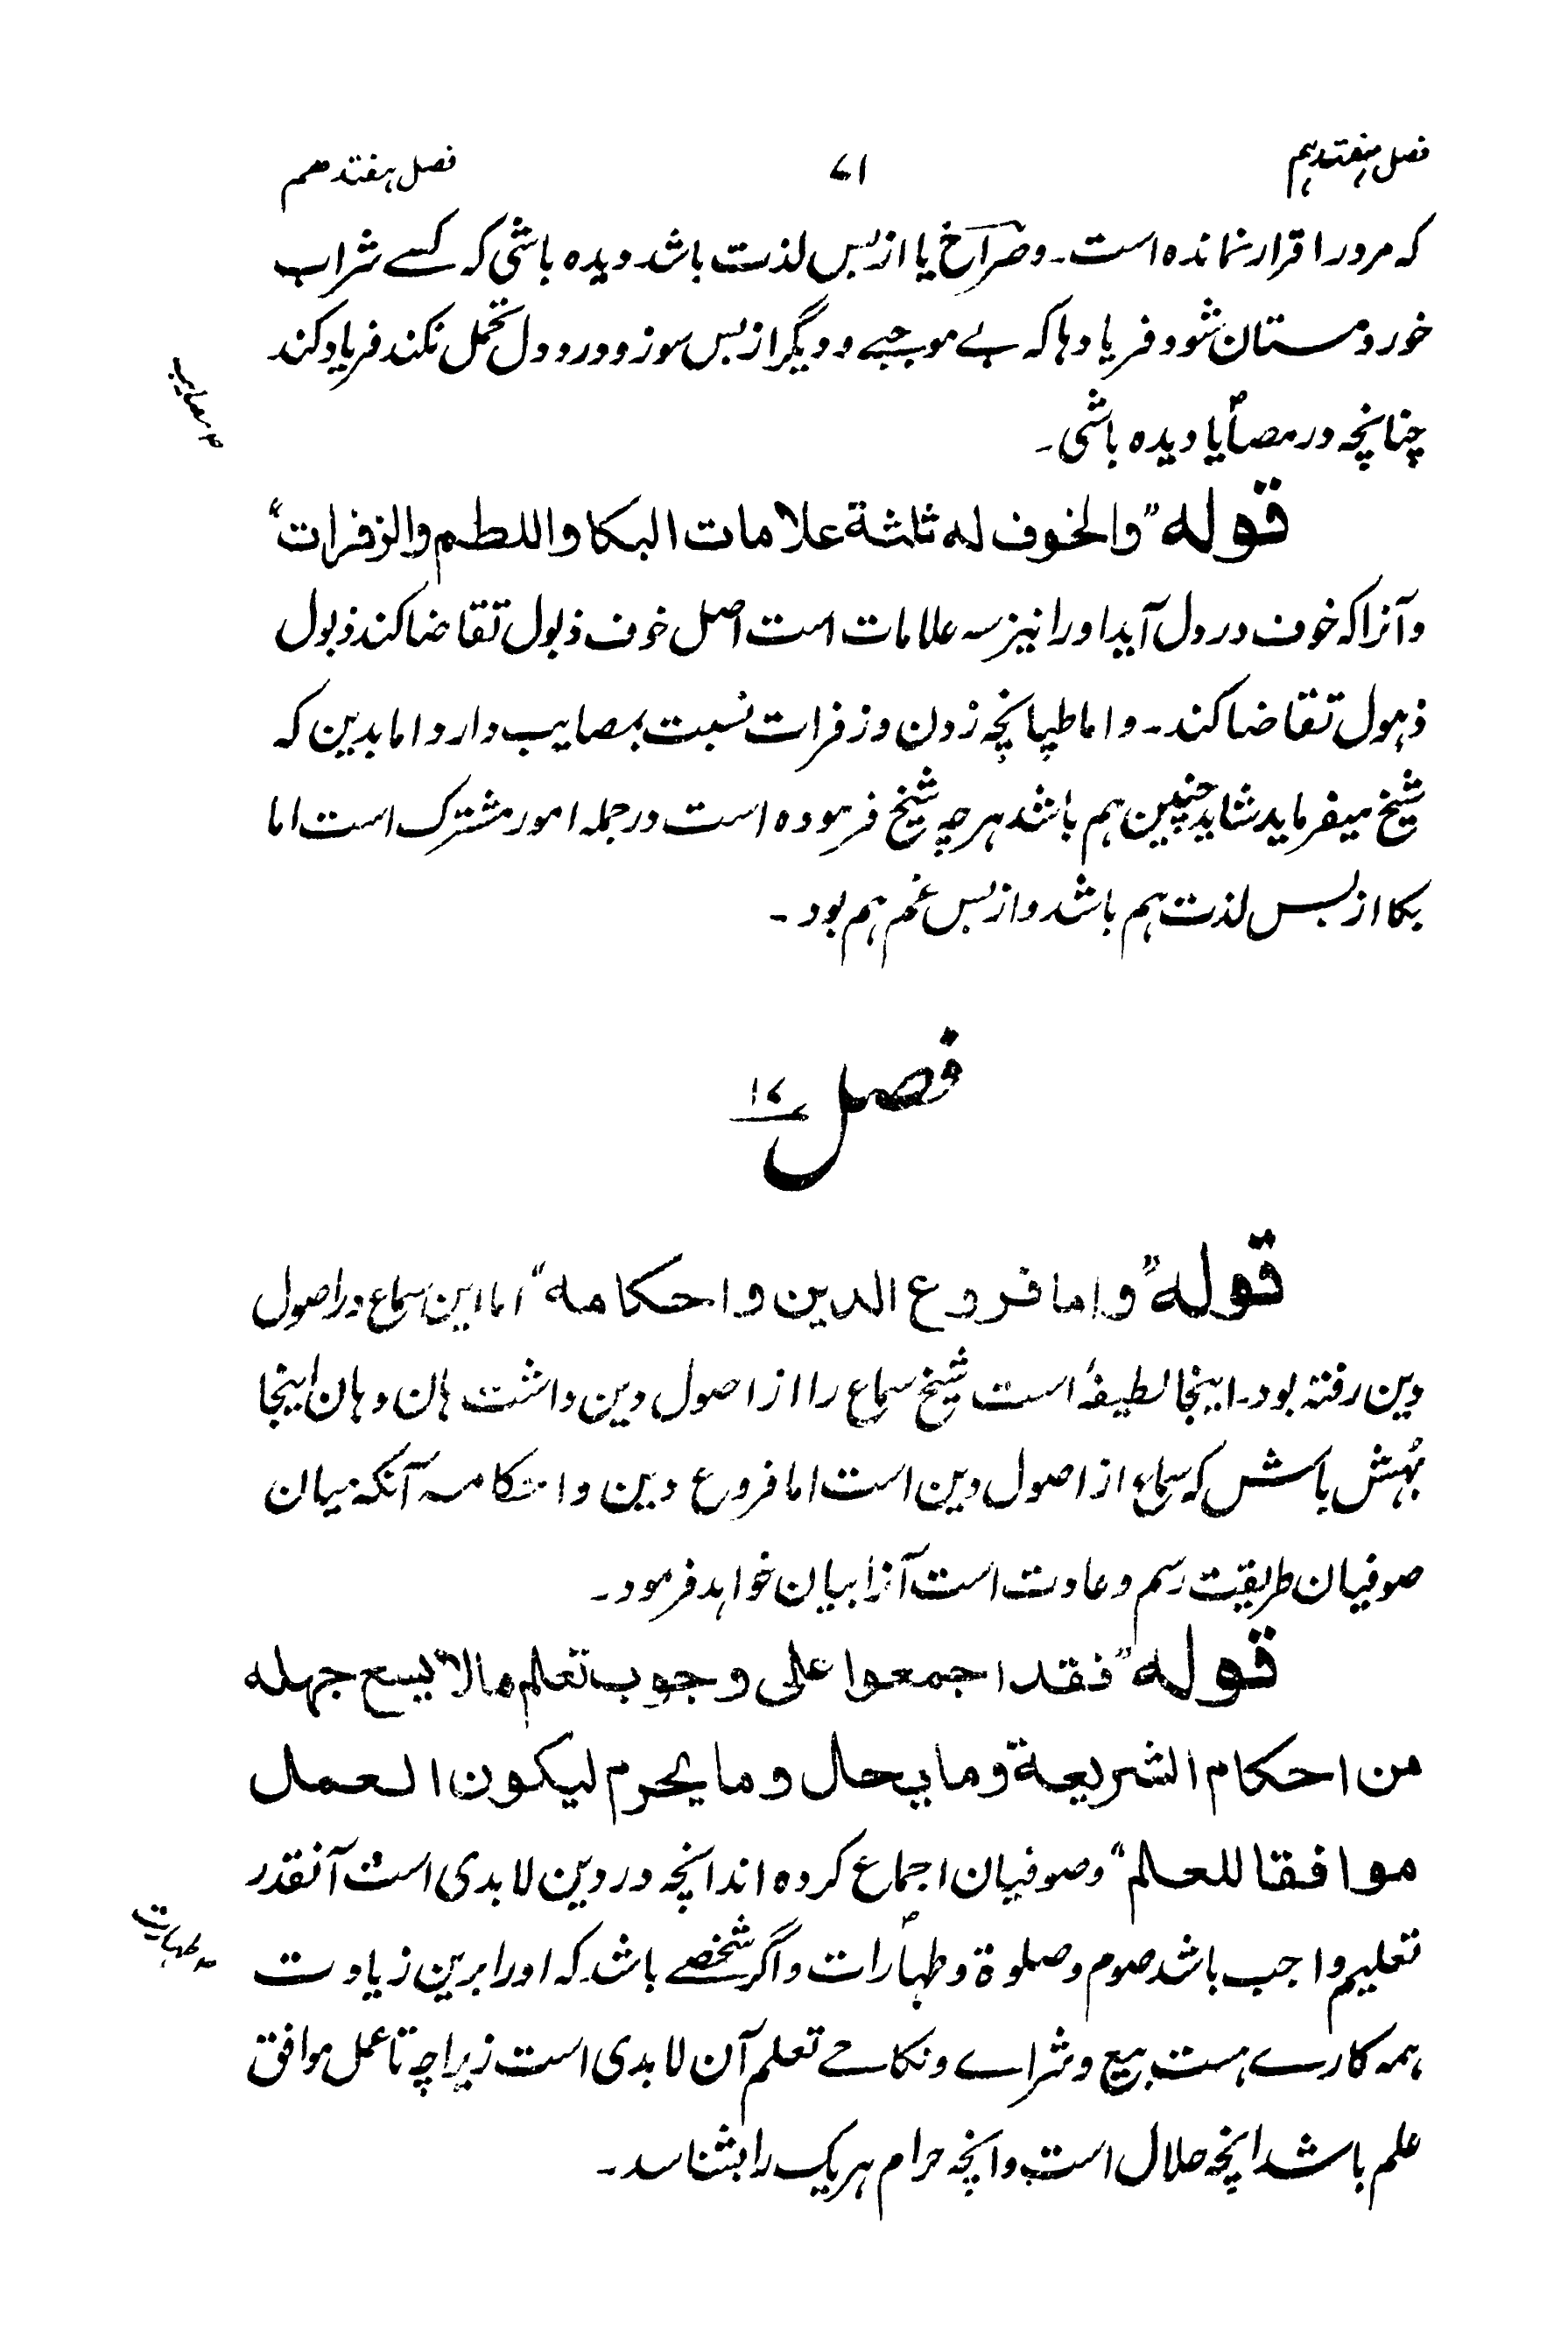 فصل هفتدهم
۷۱
فصل هفتدهم
که مرورا قرار نمانده است۔ وصراخ یا از بس لذت باشد دیده باشی که کسے شراب
خورد مستان شود فریادها که بے موجبے و دیگر از بس سوز و درد دل تحمل نکند فریاد کند
چنانچه در مصایا دیده باشی۔
قوله "والخوف له ثلثة علامات البکا واللطم والزفرات"
وآنرا که خوف در دل آید اورا نیز سه علامات است اصل خوف ذبول تقاضا کند ذبول
ذهول تقاضا کند۔ واما طپانچه زدن و زفرات نسبت بمصایب دارد اما بدین که
شیخ میفرماید شاید چنین هم باشد هرچه شیخ فرموده است در جمله امور مشترک است اما
بکا از بس لذت هم باشد و از بس غم هم بود۔
فصل ۱۷
قوله "واما فروع الدین واحکامه" اما این سماع در اصول
دین رفته بود۔ اینجا لطیفهٔ است شیخ سماع را از اصول دین داشت هان و هان اینجا
بُهش باش که سماع از اصول دین است اما فروع دین و احکامه آنکه میان
صوفیان طریقت رسم و عادت است آنرا بیان خواهد فرمود۔
قوله "فقد اجمعوا علی وجوب تعلم مالا یسع جهله
من احکام الشریعة وما یحل وما یحرم لیکون العمل
موافقا للعلم" وصوفیان اجماع کرده اند انچه در دین لابدی است آنقدر
تعلیم واجب باشد صوم وصلوة و طهارات و اگر شخصے باشد که اورا برین زیادت
همه کارے هست بیع و شراے و نکاحے تعلم آن لابدی است زیراچه تا عمل موافق
علم باشد انچه حلال است وانچه حرام هریک را بشناسد۔
م مصایب
ه طهارت